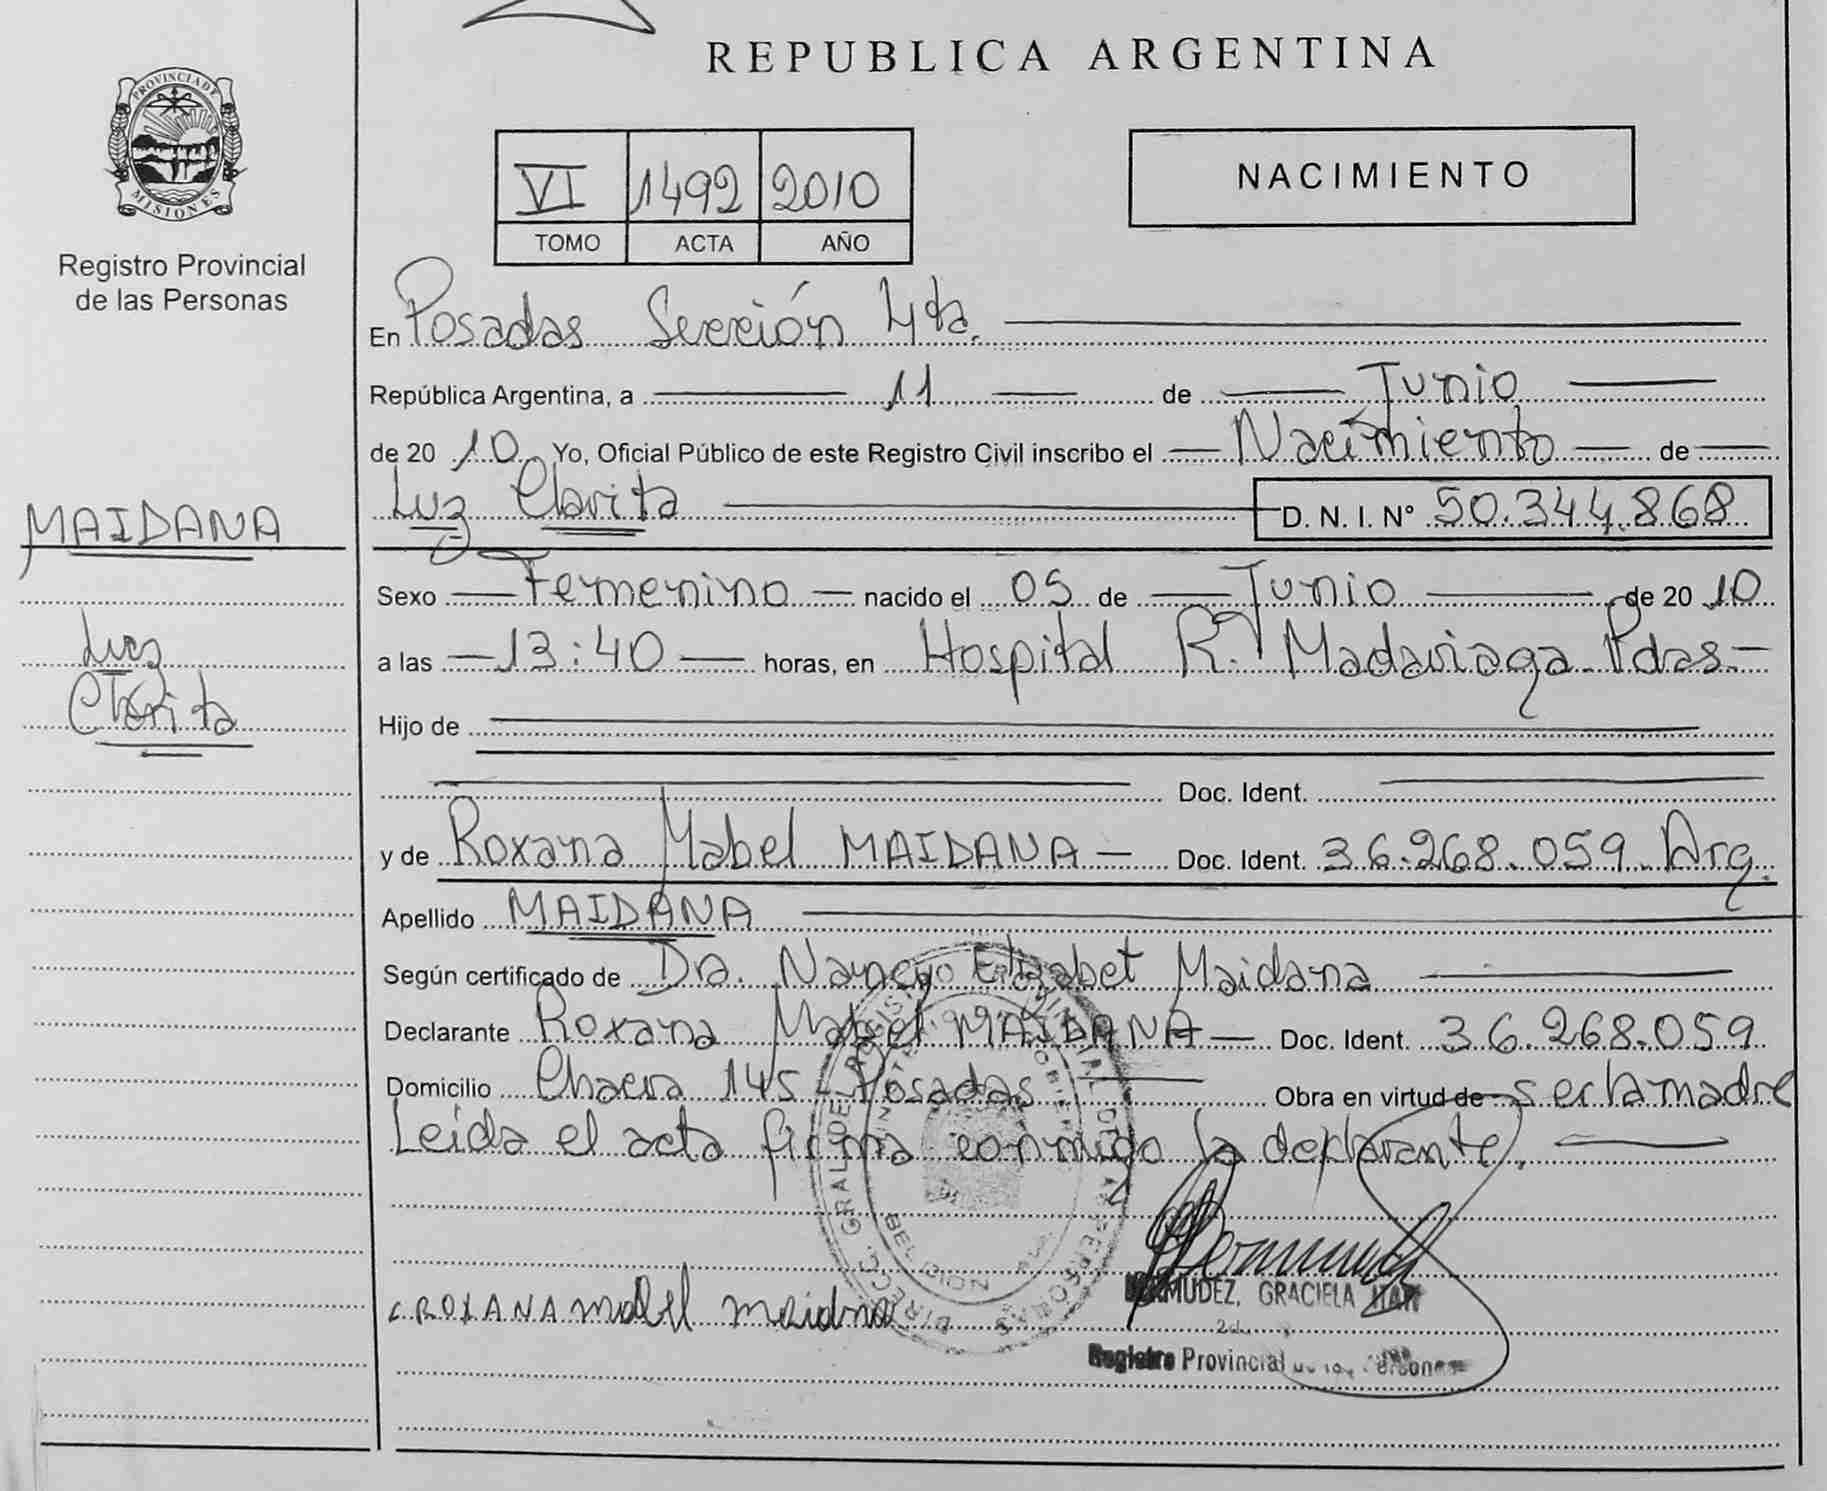 REPUBLICA ARGENTINA
PROVINCIA DE MISIONES
Registro Provincial
de las Personas
VI 1492 2010
TOMO ACTA AÑO
NACIMIENTO
En Posadas Sección 4ta.
República Argentina, a 11 de Junio
de 2010 Yo, Oficial Público de este Registro Civil inscribo el Nacimiento de
Luz Clarita D. N. I. N° 50.344.868
MAIDANA
Luz
Clarita
Sexo Femenino nacido el 05 de Junio de 2010
a las 13:40 horas, en Hospital R. Madariaga Pdas
Hijo de
Doc. Ident.
y de Roxana Mabel MAIDANA Doc. Ident. 36.268.059 Arg.
Apellido MAIDANA
Según certificado de Dra. Nancy Elizabet Maidana
Declarante Roxana Mabel MAIDANA Doc. Ident. 36.268.059
Domicilio Chacra 145 - Posadas Obra en virtud de ser la madre
Leida el acta firma conmigo la declarante.
ROXANA mabel maidana
BERMUDEZ, GRACIELA
Registro Provincial de las Personas